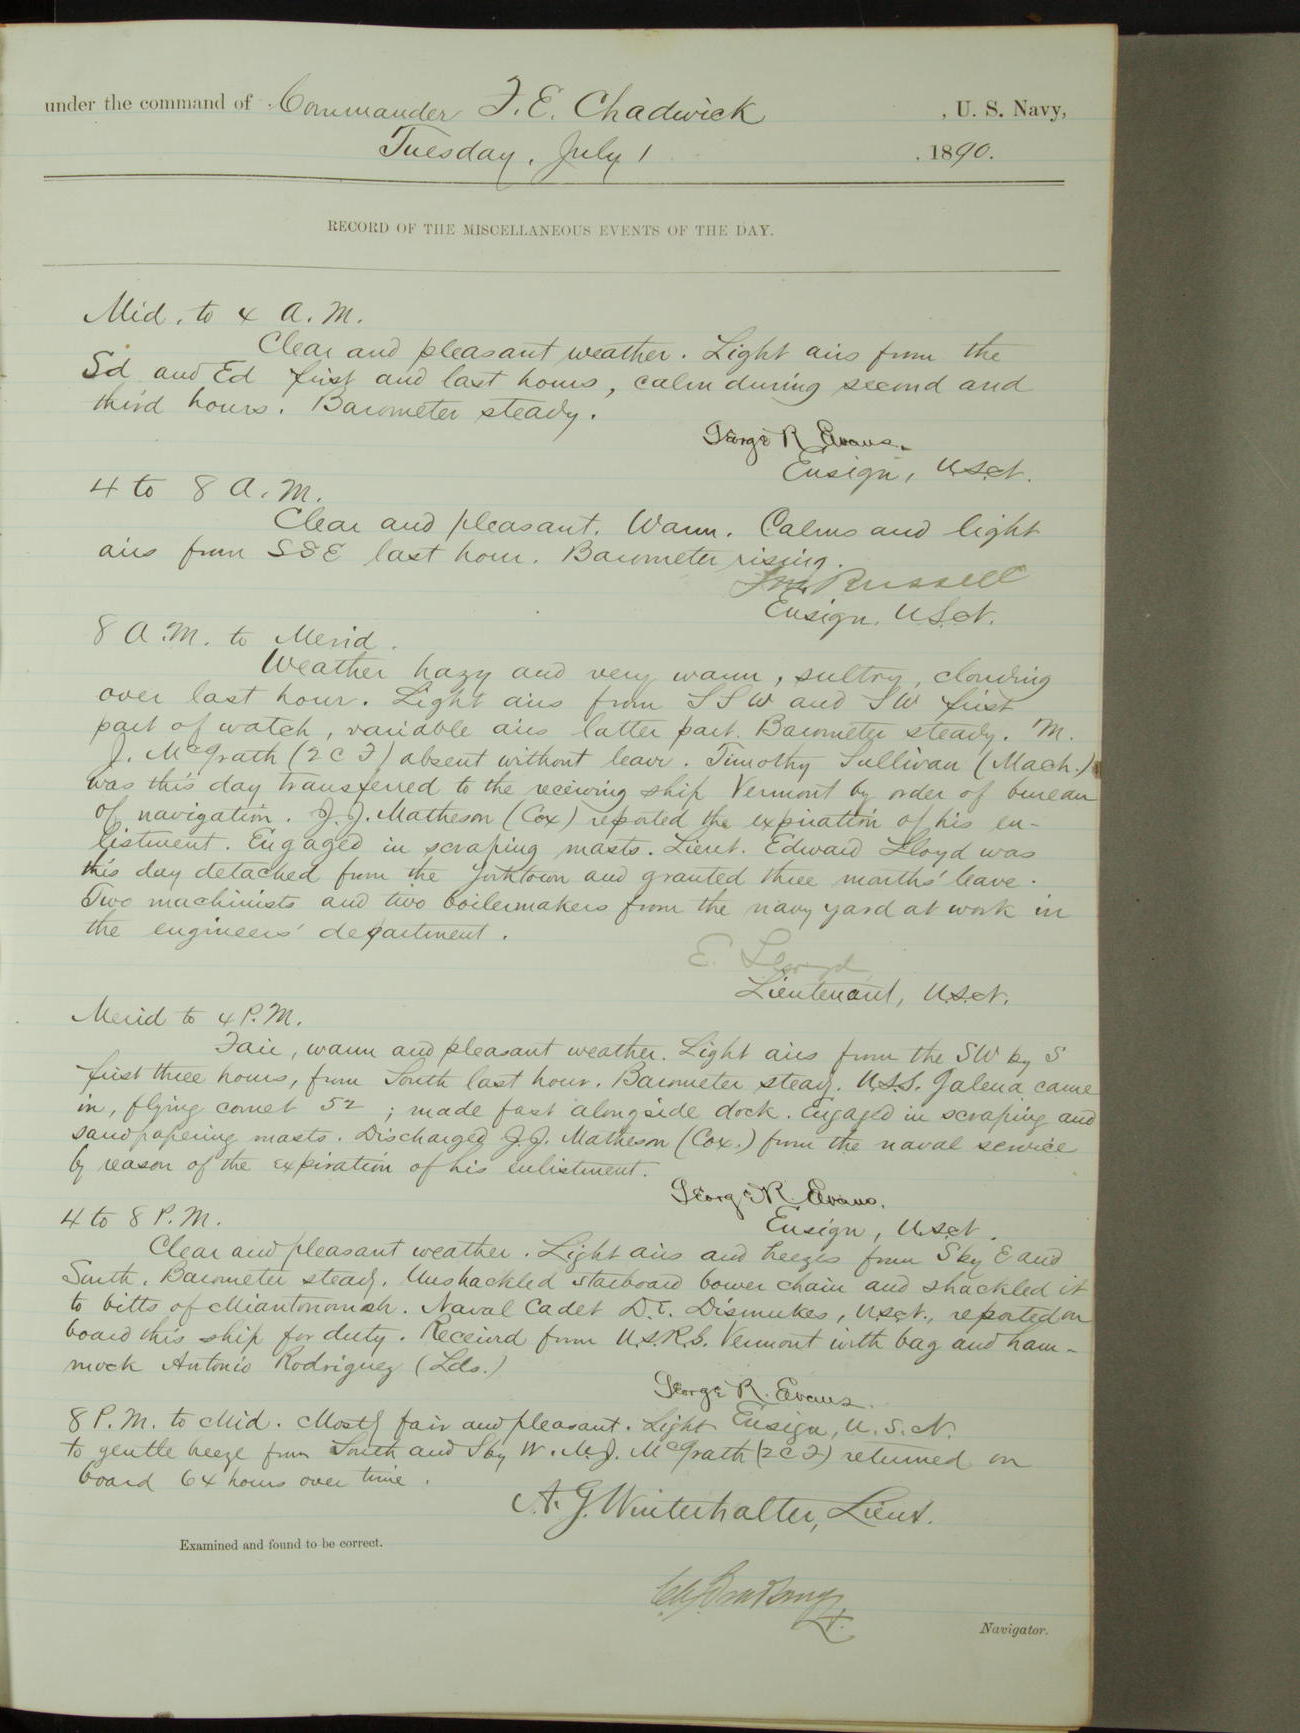 under the command of Commander F. E. Chadwick , U. S. Navy,
Tuesday, July 1 , 1890.
RECORD OF THE MISCELLANEOUS EVENTS OF THE DAY.
Mid. to 4 A. M.
Clear and pleasant weather. Light airs from the
Sd and Ed first and last hours, calm during second and
third hours. Barometer steady.
George R Evans.
Ensign, U.S.N.
4 to 8 A. M.
Clear and pleasant. Warm. Calms and light
airs from SSE last hour. Barometer rising.
Russell
Ensign. U.S.N.
8 A. M. to Merid.
Weather hazy and very warm, sultry, clouding
over last hour. Light airs from SSW and SW first
part of watch, variable airs latter part. Barometer steady. M.
J. McGrath (2 C F) absent without leave. Timothy Sullivan (Mach.)
was this day transferred to the receiving ship Vermont by order of bureau
of navigation. J. J. Matheson (Cox) reported the expiration of his en-
listment. Engaged in scraping masts. Lieut. Edward Lloyd was
this day detached from the Yorktown and granted three months' leave.
Two machinists and two boilermakers from the navy yard at work in
the engineers' department.
E. Lloyd
Lieutenant, U.S.N.
Merid to 4 P. M.
Fair, warm and pleasant weather. Light airs from the SW by S
first three hours, from South last hour. Barometer steady. U.S.S. Galena came
in, flying cornet 52 ; made fast alongside dock. Engaged in scraping and
sandpapering masts. Discharged J. J. Matheson (Cox.) from the naval service
by reason of the expiration of his enlistment.
George R. Evans.
Ensign, U.S.N.
4 to 8 P. M.
Clear and pleasant weather. Light airs and breezes from S by E and
South. Barometer steady. Unshackled starboard bower chain and shackled it
to bitts of Miantonomoh. Naval Cadet D. E. Dismukes, U.S.N., reported on
board this ship for duty. Received from U.S.R.S. Vermont with bag and ham-
mock Antonio Rodriguez (Lds.)
George R. Evans.
Ensign, U. S. N.
8 P. M. to Mid. Mostly fair and pleasant. Light
to gentle breeze from South and S by W. M. J. McGrath (2 C F) returned on
board 64 hours over time.
A. G. Winterhalter, Lieut.
Examined and found to be correct.
Lt.
Navigator.